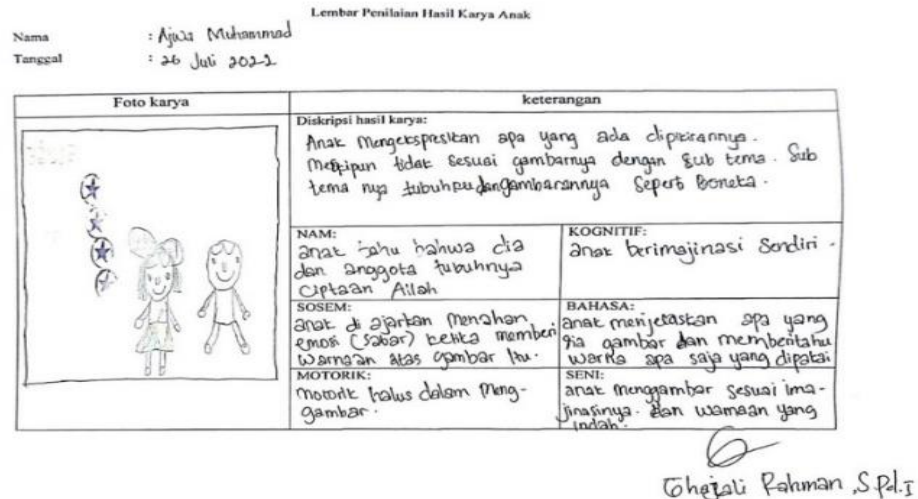 Lembar Penilaian Hasil Karya Anak
Nama : Ajwa Muhammad
Tanggal : 26 Juli 2022
Foto karya
keterangan
Diskripsi hasil karya:
Anak mengekspresikan apa yang ada dipikirannya.
Meskipun tidak sesuai gambarnya dengan sub tema. Sub
tema nya tubuhku dan gambarannya seperti Boneka.
NAM:
anak tahu bahwa dia
dan anggota tubuhnya
ciptaan Allah
KOGNITIF:
anak berimajinasi sendiri.
SOSEM:
anak di ajarkan menahan
emosi (sabar) ketika memberi
warnaan atas gambar itu.
BAHASA:
anak menjelaskan apa yang
dia gambar dan memberitahu
warna apa saja yang dipakai
MOTORIK:
motorik halus dalam meng-
gambar.
SENI:
anak menggambar sesuai ima-
jinasinya. dan warnaan yang
indah.
Ghazali Rahman, S.Pd.I